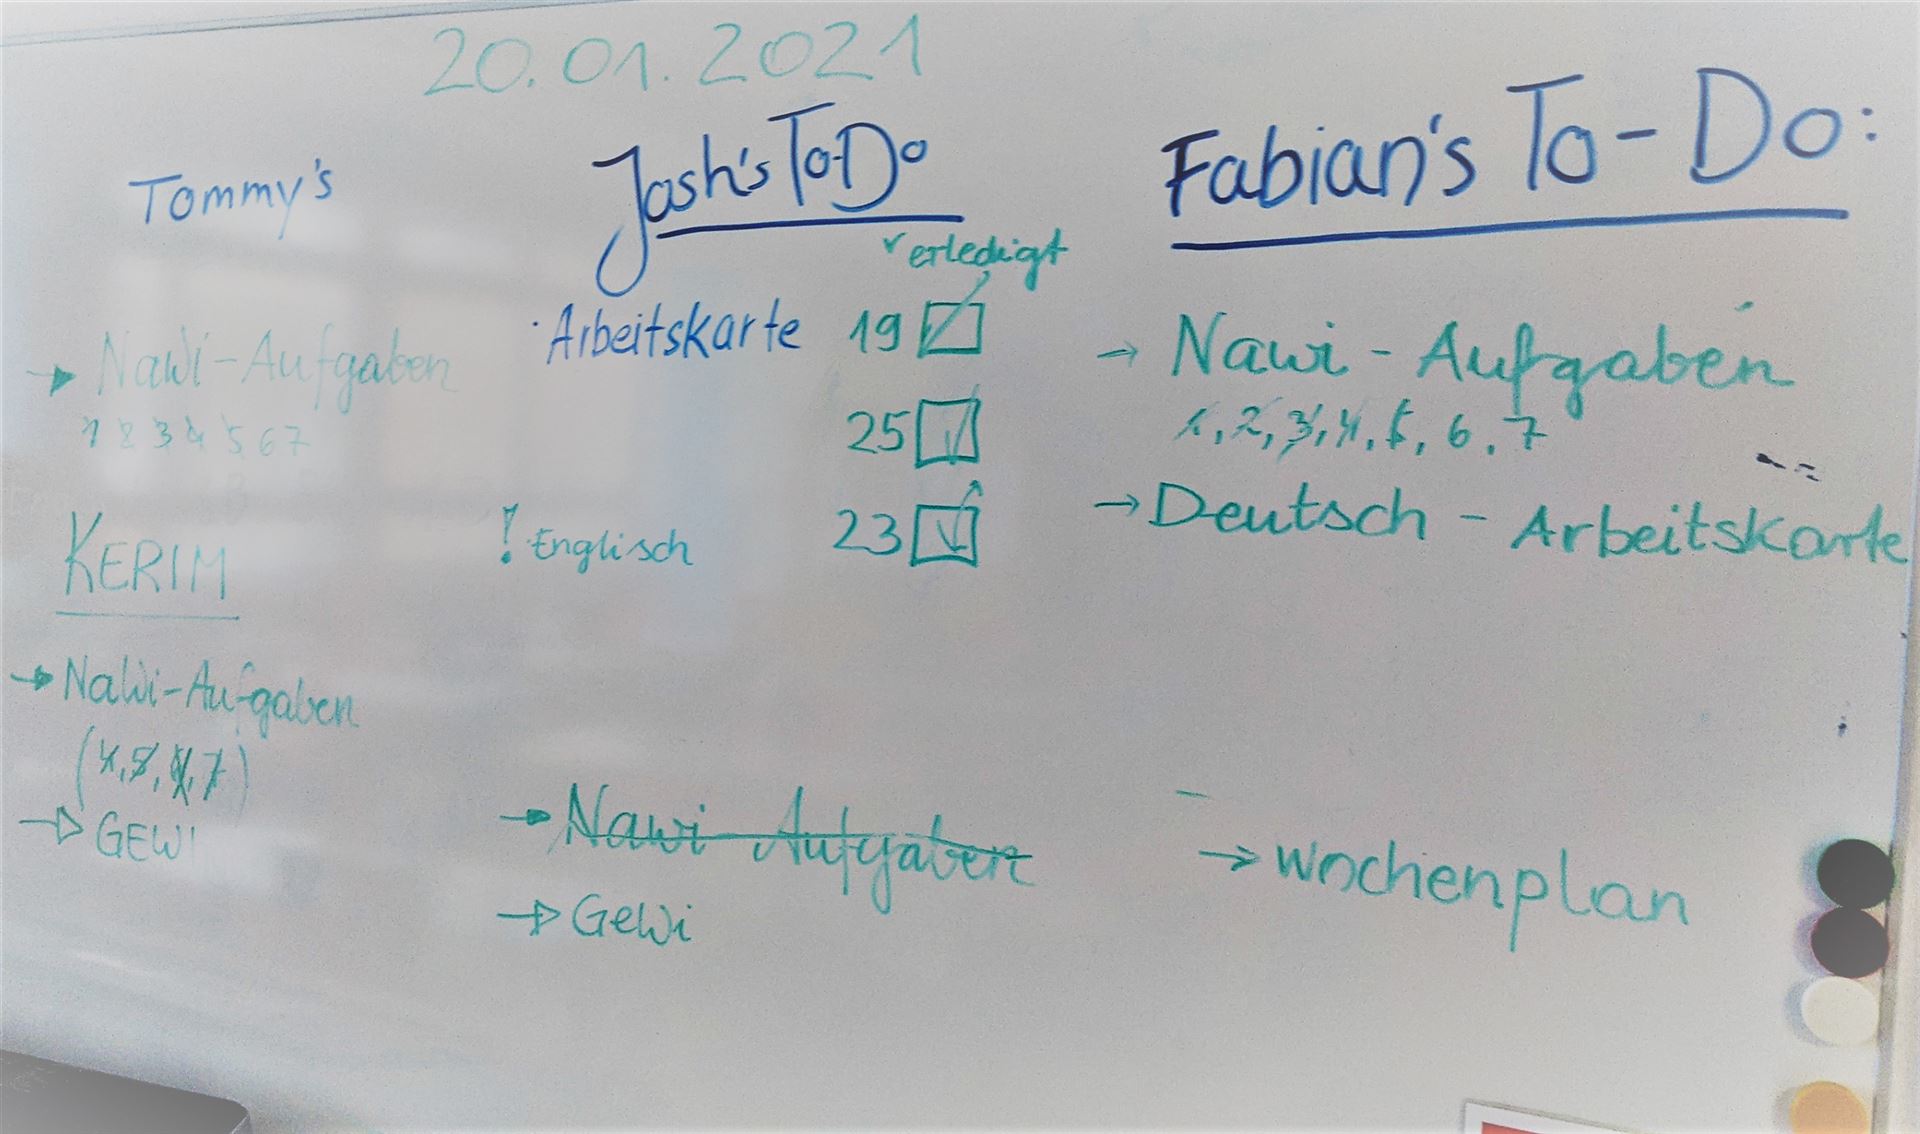 20.01.2021
Tommy's
→ Nawi-Aufgaben
1 2 3 4 5 6 7
KERIM
→ Nawi-Aufgaben
→ GEWI
Josh's To-Do
✓ erledigt
· Arbeitskarte 19 ☑
25 ☑
! Englisch 23 ☑
→ Nawi-Aufgaben
→ GeWi
Fabian's To-Do:
→ Nawi - Aufgaben
1, 2, 3, 4, 5, 6, 7
→ Deutsch - Arbeitskarte
→ Wochenplan